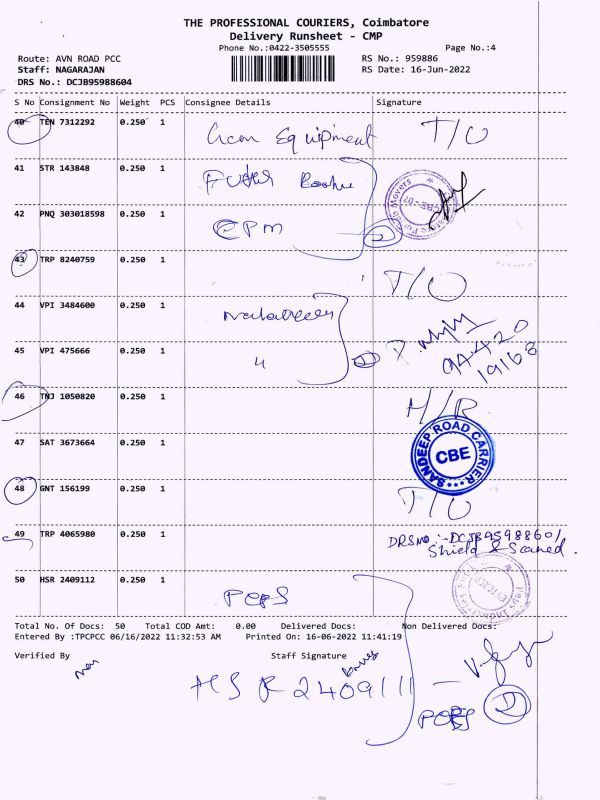 THE PROFESSIONAL COURIERS, Coimbatore
Delivery Runsheet - CMP
Phone No.:0422-3505555
Page No.:4
Route: AVN ROAD PCC
RS No.: 959886
Staff: NAGARAJAN
RS Date: 16-Jun-2022
DRS No.: DCJB95988604
S No Consignment No Weight PCS Consignee Details Signature
40 TEN 7312292 0.250 1 Equipment T/O
41 STR 143848 0.250 1
42 PNQ 303018598 0.250 1 CPM 2
43 TRP 8240759 0.250 1 T/O
44 VPI 3484600 0.250 1
94420
19168
45 VPI 475666 0.250 1 4 2
46 TNJ 1050820 0.250 1 H/R
SANDEEP ROAD CARRIER
CBE
47 SAT 3673664 0.250 1
48 GNT 156199 0.250 1 T/O
49 TRP 4065980 0.250 1 DRSNO :- DCJB95988601
Shield & Scaned.
50 HSR 2409112 0.250 1 POPS
Total No. Of Docs: 50 Total COD Amt: 0.00 Delivered Docs: Non Delivered Docs:
Entered By :TPCPCC 06/16/2022 11:32:53 AM Printed On: 16-06-2022 11:41:19
Verified By Staff Signature
HSR 2409111 -
POPS 2